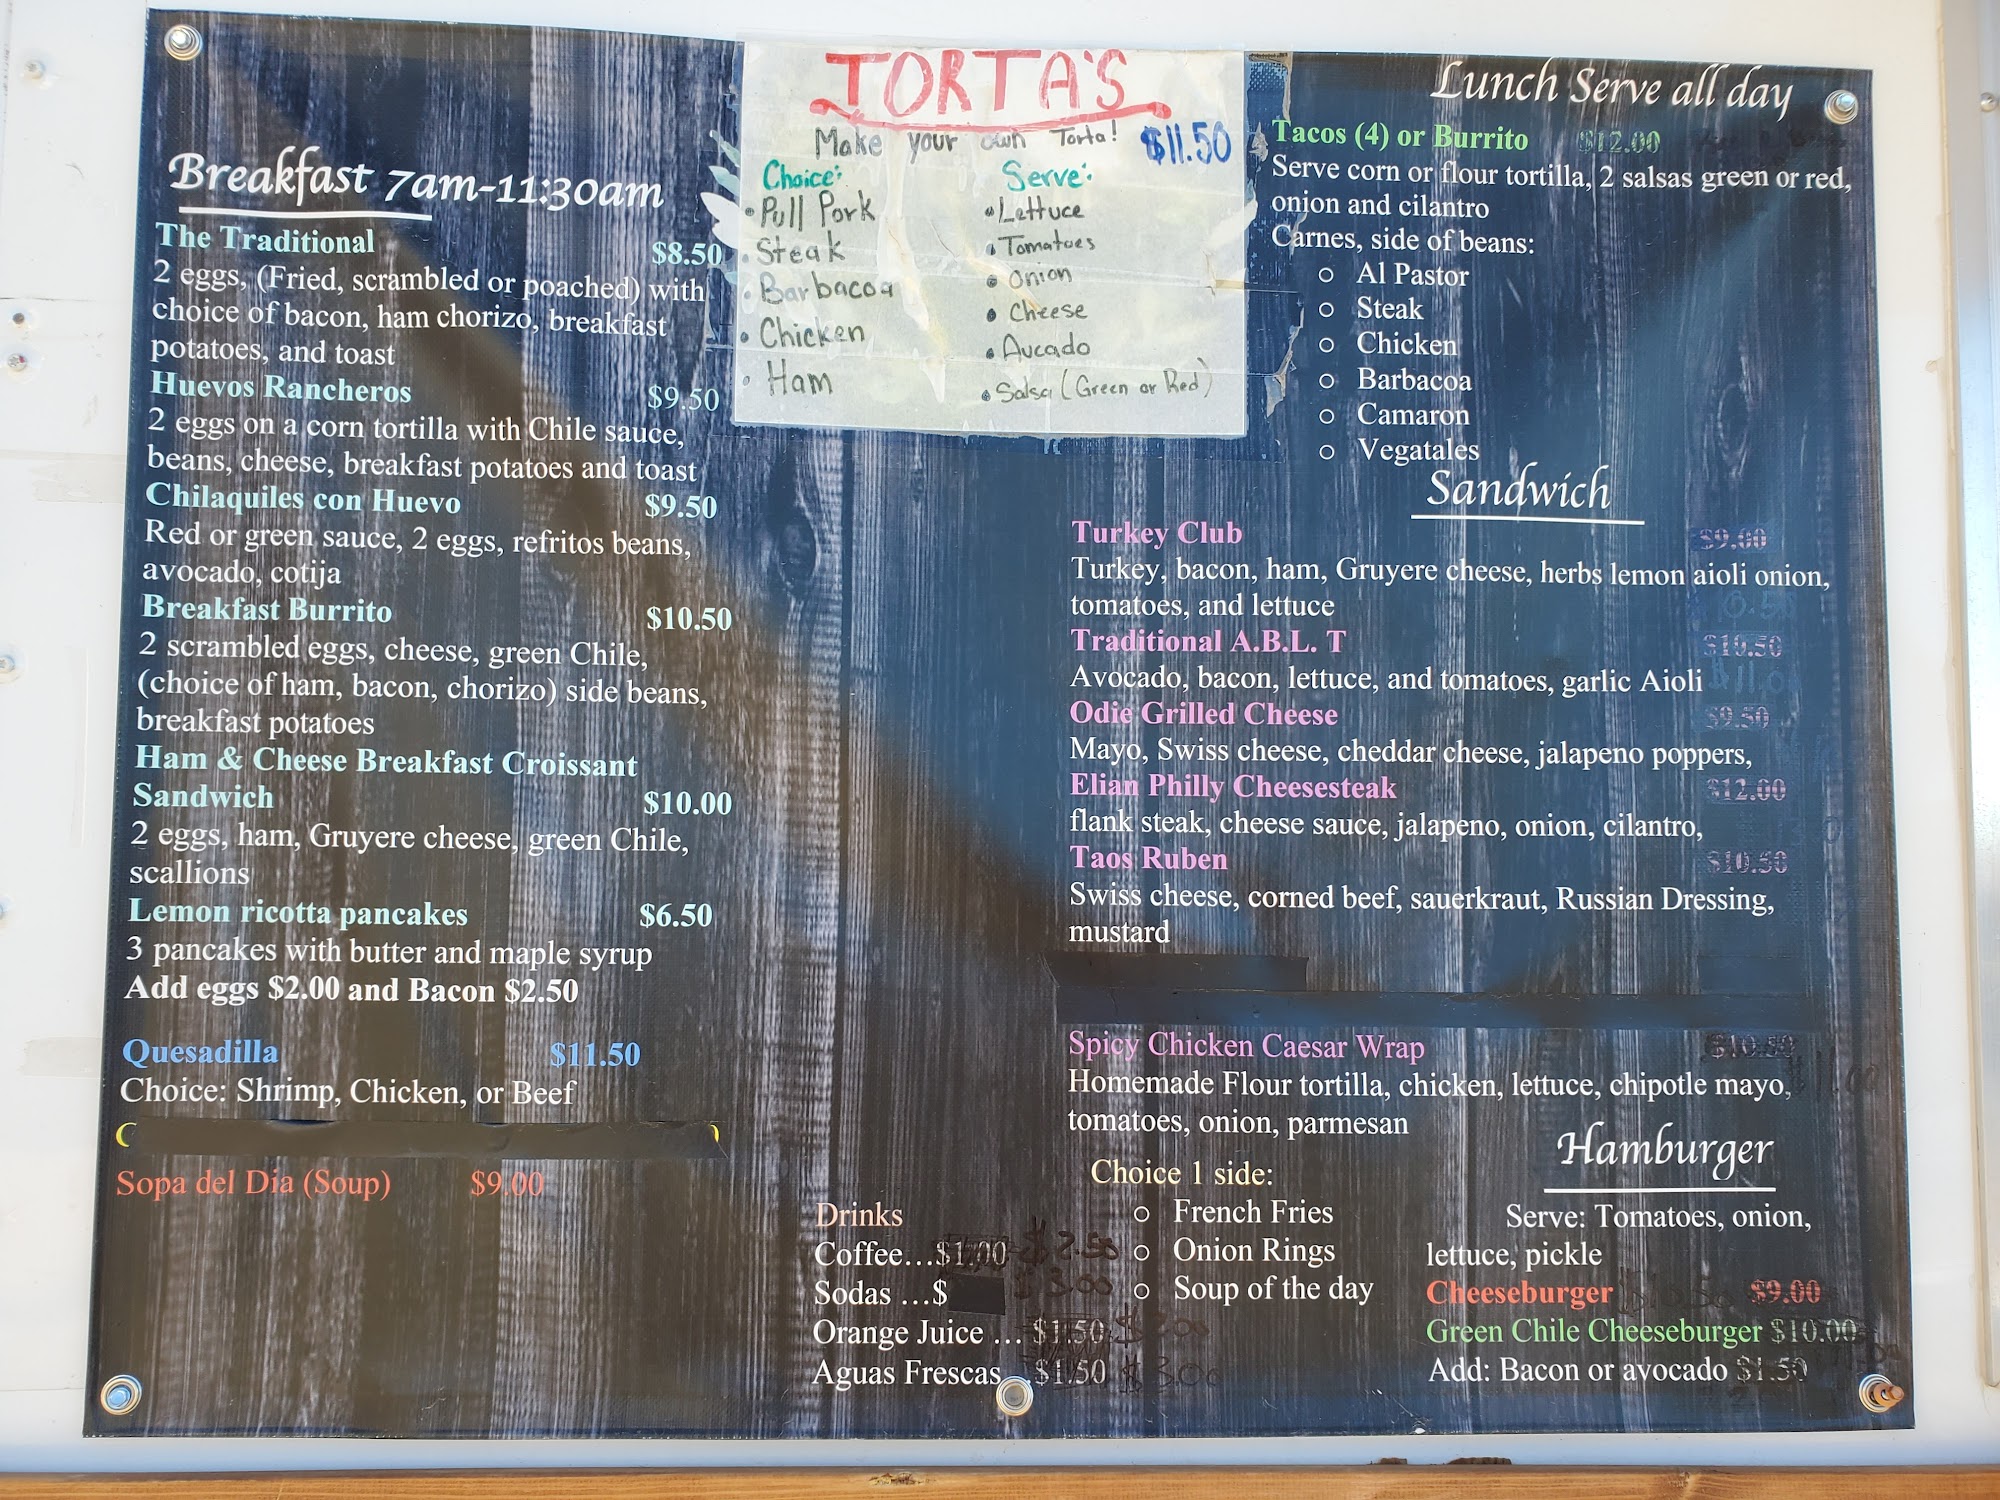 Breakfast 7am-11:30am
The Traditional $8.50
2 eggs, (Fried, scrambled or poached) with
choice of bacon, ham chorizo, breakfast
potatoes, and toast
Huevos Rancheros $9.50
2 eggs on a corn tortilla with Chile sauce,
beans, cheese, breakfast potatoes and toast
Chilaquiles con Huevo $9.50
Red or green sauce, 2 eggs, refritos beans,
avocado, cotija
Breakfast Burrito $10.50
2 scrambled eggs, cheese, green Chile,
(choice of ham, bacon, chorizo) side beans,
breakfast potatoes
Ham & Cheese Breakfast Croissant
Sandwich $10.00
2 eggs, ham, Gruyere cheese, green Chile,
scallions
Lemon ricotta pancakes $6.50
3 pancakes with butter and maple syrup
Add eggs $2.00 and Bacon $2.50
Quesadilla $11.50
Choice: Shrimp, Chicken, or Beef
Sopa del Dia (Soup) $9.00
TORTA'S
Make your own Torta! $11.50
Choice:
• Pull Pork
• Steak
• Barbacoa
• Chicken
• Ham
Serve:
• Lettuce
• Tomatoes
• Onion
• Cheese
• Avcado
• Salsa (Green or Red)
Drinks
Coffee…$1.00 $2.50
Sodas …$ $3.00
Orange Juice … $1.50 $3.00
Aguas Frescas…$1.50 $3.00
Lunch Serve all day
Tacos (4) or Burrito $12.00
Serve corn or flour tortilla, 2 salsas green or red,
onion and cilantro
Carnes, side of beans:
○ Al Pastor
○ Steak
○ Chicken
○ Barbacoa
○ Camaron
○ Vegatales
Sandwich
Turkey Club $9.00
Turkey, bacon, ham, Gruyere cheese, herbs lemon aioli onion,
tomatoes, and lettuce
Traditional A.B.L. T $10.50
Avocado, bacon, lettuce, and tomatoes, garlic Aioli
Odie Grilled Cheese $9.50
Mayo, Swiss cheese, cheddar cheese, jalapeno poppers,
Elian Philly Cheesesteak $12.00
flank steak, cheese sauce, jalapeno, onion, cilantro,
Taos Ruben $10.50
Swiss cheese, corned beef, sauerkraut, Russian Dressing,
mustard
Spicy Chicken Caesar Wrap $10.50
Homemade Flour tortilla, chicken, lettuce, chipotle mayo,
tomatoes, onion, parmesan
Choice 1 side:
○ French Fries
○ Onion Rings
○ Soup of the day
Hamburger
Serve: Tomatoes, onion,
lettuce, pickle
Cheeseburger $9.00
Green Chile Cheeseburger $10.00
Add: Bacon or avocado $1.50